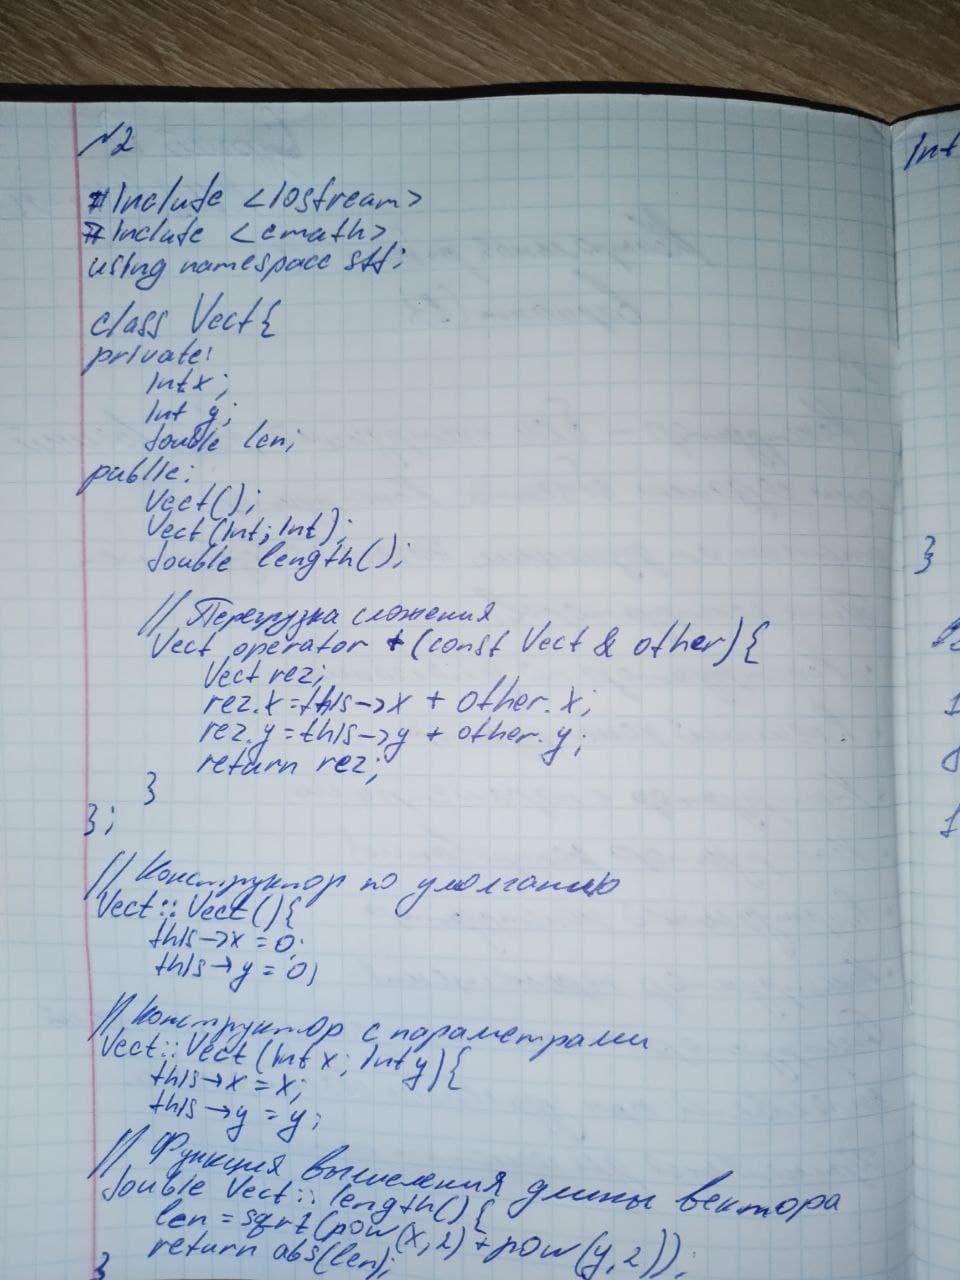 №2
#Include <Iostream>
#Include <cmath>
using namespace std;
class Vect{
private:
Int x;
Int y;
double len;
public:
Vect();
Vect(Int; Int);
double length();
// Перегрузка сложения
Vect operator + (const Vect & other){
Vect rez;
rez.x = this->x + other.x;
rez.y = this->y + other.y;
return rez;
}
};
// Конструктор по умолчанию
Vect::Vect(){
this->x = 0;
this->y = 0;
// Конструктор с параметрами
Vect::Vect(Int x; Int y){
this->x = x;
this->y = y;
// Функция вычисления длины вектора
double Vect::length(){
len = sqrt(pow(x,2) + pow(y,2));
return abs(len);
}
Int
}